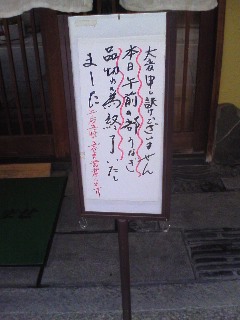 大変申し訳ございません
本日午前の部うなぎ
品切れの為終了いたし
ました